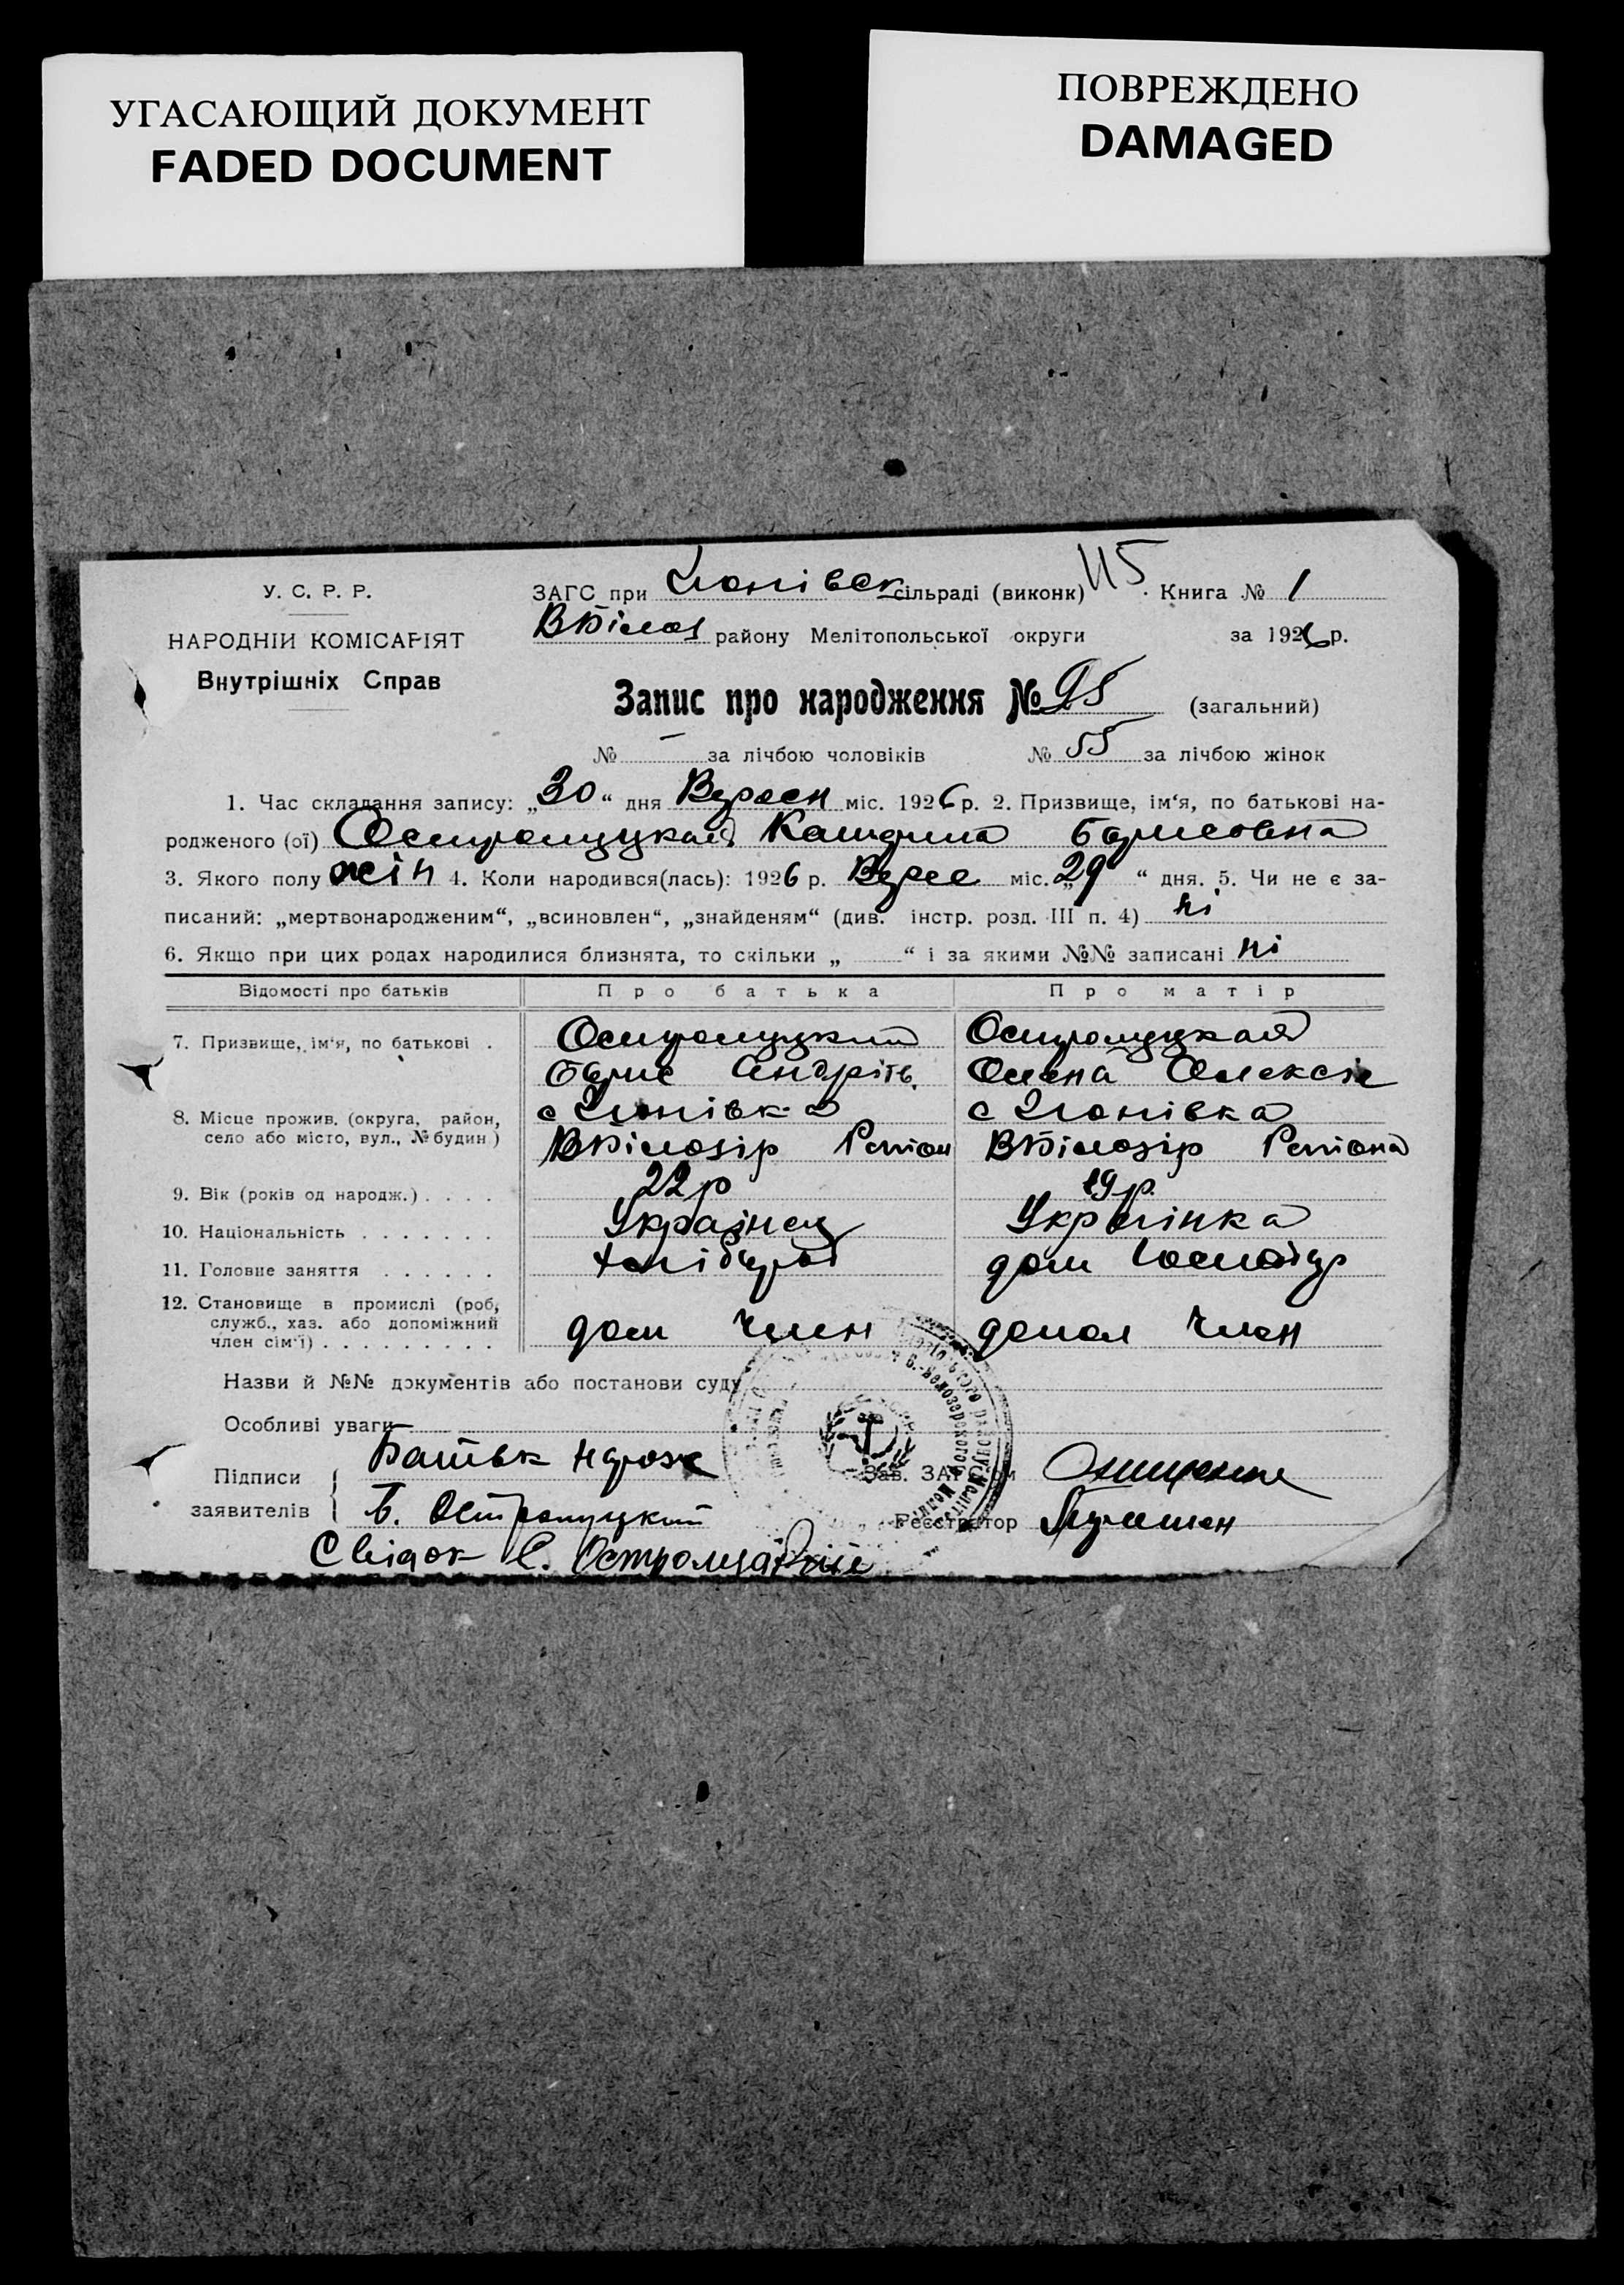 УГАСАЮЩИЙ ДОКУМЕНТ
FADED DOCUMENT
ПОВРЕЖДЕНО
DAMAGED
У. С. Р. Р.
НАРОДНІЙ КОМІСАРІЯТ
Внутрішніх Справ
ЗАГС при сільраді (виконк) 115 Книга № 1
ВБілоз району Мелітопольської округи за 1926 р.
Запис про народження № 95 (загальний)
№ — за лічбою чоловіків № 55 за лічбою жінок
1. Час складання запису: „30“ дня Вересн міс. 1926 р. 2. Призвище, ім‘я, по батькові на-
родженого (ої) Остромуцкая Борисовна
3. Якого полу жін 4. Коли народився(лась): 1926 р. Верес міс. „29“ дня. 5. Чи не є за-
писаний: „мертвонародженим“, „всиновлен“, „знайденям“ (див. інстр. розд. III п. 4) ні
6. Якщо при цих родах народилися близнята, то скільки „ “ і за якими №№ записані ні
Відомості про батьків
Про батька
Про матір
7. Призвище, ім‘я, по батькові .
Остромуцкий
Остромуцкая
Борис Андрієв.
Олена Олексіє
8. Місце прожив. (округа, район,
село або місто, вул., № будин)
ВБілозір Района
ВБілозір Района
9. Вік (років од народж.) . . . .
22 р
19 р.
10. Національність . . . . . . .
Українец
Українка
11. Головне заняття . . . . . .
хлібороб
дом господур
12. Становище в промислі (роб,
служб., хаз. або допоміжний
член сім‘ї) . . . . . . . . .
дом член
допом член
Назви й №№ документів або постанови суду
Особливі уваги
Підписи
заявителів
Батьк
Б. Остромуцкий
Свідок С.
Зав. ЗАГСом Онищенко
Реєстратор